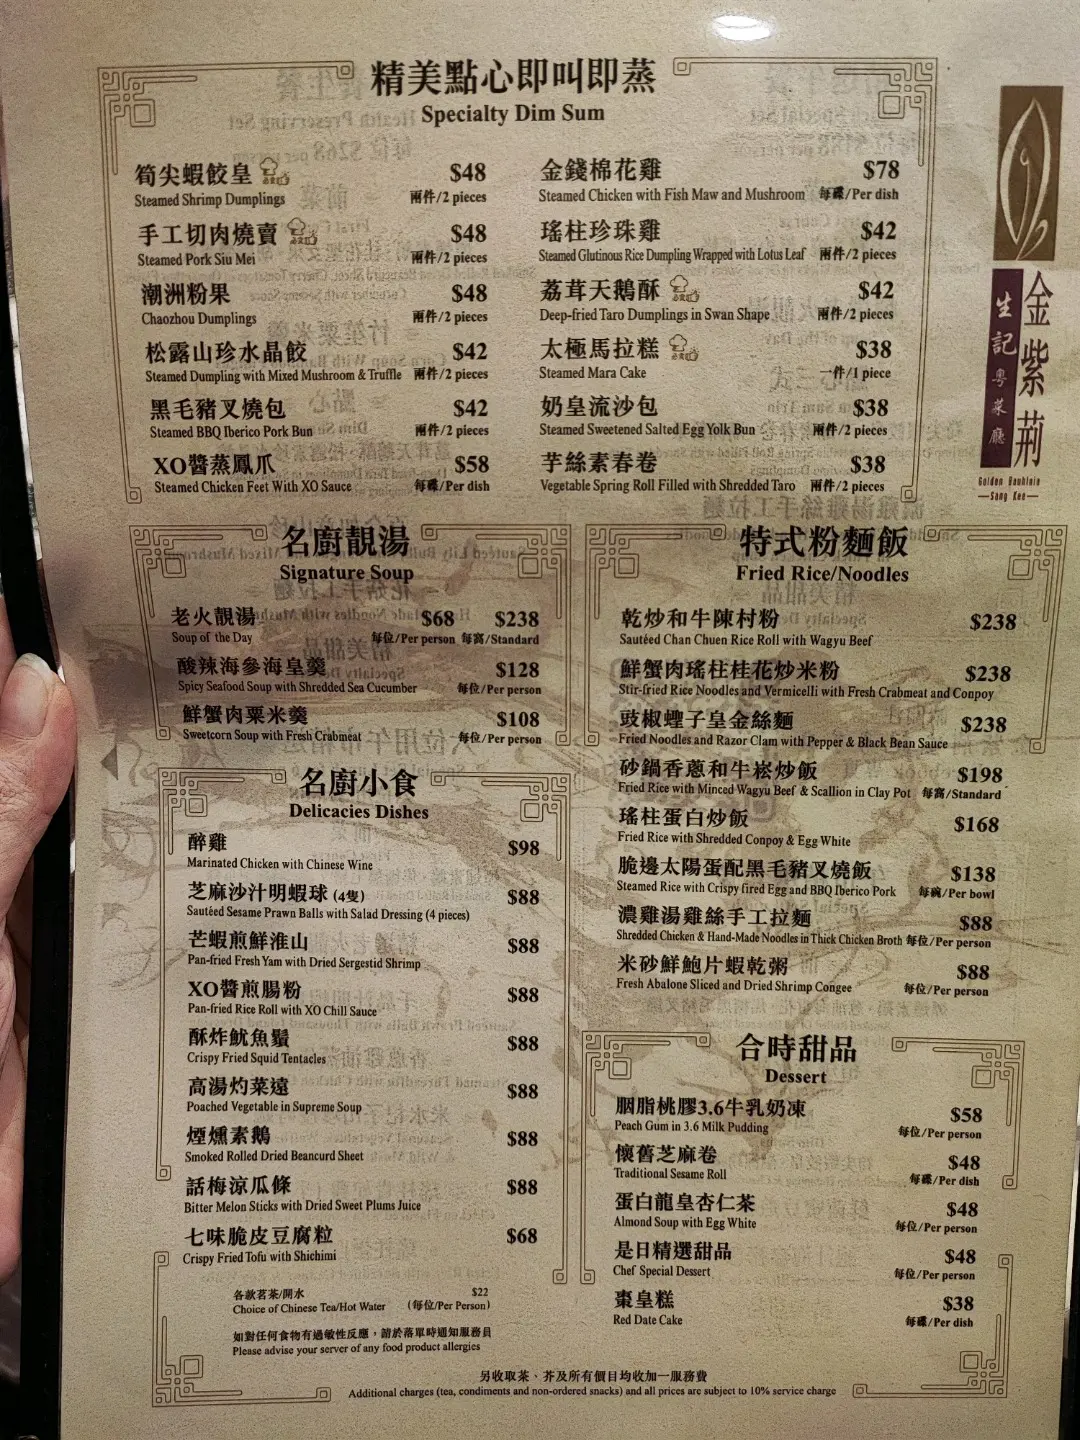 精美點心即叫即蒸
Specialty Dim Sum
筍尖蝦餃皇 $48
Steamed Shrimp Dumplings 兩件/2 pieces
手工切肉燒賣 $48
Steamed Pork Siu Mei 兩件/2 pieces
潮洲粉果 $48
Chaozhou Dumplings 兩件/2 pieces
松露山珍水晶餃 $42
Steamed Dumpling with Mixed Mushroom & Truffle 兩件/2 pieces
黑毛豬叉燒包 $42
Steamed BBQ Iberico Pork Bun 兩件/2 pieces
XO醬蒸鳳爪 $58
Steamed Chicken Feet With XO Sauce 每碟/Per dish
金錢棉花雞 $78
Steamed Chicken with Fish Maw and Mushroom 每碟/Per dish
瑤柱珍珠雞 $42
Steamed Glutinous Rice Dumpling Wrapped with Lotus Leaf 兩件/2 pieces
荔茸天鵝酥 $42
Deep-fried Taro Dumplings in Swan Shape 兩件/2 pieces
太極馬拉糕 $38
Steamed Mara Cake 一件/1 piece
奶皇流沙包 $38
Steamed Sweetened Salted Egg Yolk Bun 兩件/2 pieces
芋絲素春卷 $38
Vegetable Spring Roll Filled with Shredded Taro 兩件/2 pieces
金紫荊
生記粵菜廳
Golden Bauhinia
—Sang Kee—
名廚靚湯
Signature Soup
老火靚湯 $68 $238
Soup of the Day 每位/Per person 每窩/Standard
酸辣海參海皇羹 $128
Spicy Seafood Soup with Shredded Sea Cucumber 每位/Per person
鮮蟹肉粟米羹 $108
Sweetcorn Soup with Fresh Crabmeat 每位/Per person
名廚小食
Delicacies Dishes
醉雞 $98
Marinated Chicken with Chinese Wine
芝麻沙汁明蝦球 (4隻) $88
Sautéed Sesame Prawn Balls with Salad Dressing (4 pieces)
芒蝦煎鮮淮山 $88
Pan-fried Fresh Yam with Dried Sergestid Shrimp
XO醬煎腸粉 $88
Pan-fried Rice Roll with XO Chill Sauce
酥炸魷魚鬚 $88
Crispy Fried Squid Tentacles
高湯灼菜遠 $88
Poached Vegetable in Supreme Soup
煙燻素鵝 $88
Smoked Rolled Dried Beancurd Sheet
話梅涼瓜條 $88
Bitter Melon Sticks with Dried Sweet Plums Juice
七味脆皮豆腐粒 $68
Crispy Fried Tofu with Shichimi
各款茗茶/開水 $22
Choice of Chinese Tea/Hot Water (每位/Per Person)
如對任何食物有過敏性反應，請於落單時通知服務員
Please advise your server of any food product allergies
特式粉麵飯
Fried Rice/Noodles
乾炒和牛陳村粉 $238
Sautéed Chan Chuen Rice Roll with Wagyu Beef
鮮蟹肉瑤柱桂花炒米粉 $238
Stir-fried Rice Noodles and Vermicelli with Fresh Crabmeat and Conpoy
豉椒蟶子皇金絲麵 $238
Fried Noodles and Razor Clam with Pepper & Black Bean Sauce
砂鍋香蔥和牛崧炒飯 $198
Fried Rice with Minced Wagyu Beef & Scallion in Clay Pot 每窩/Standard
瑤柱蛋白炒飯 $168
Fried Rice with Shredded Conpoy & Egg White
脆邊太陽蛋配黑毛豬叉燒飯 $138
Steamed Rice with Crispy fired Egg and BBQ Iberico Pork 每碗/Per bowl
濃雞湯雞絲手工拉麵 $88
Shredded Chicken & Hand-Made Noodles in Thick Chicken Broth 每位/Per person
米砂鮮鮑片蝦乾粥 $88
Fresh Abalone Sliced and Dried Shrimp Congee 每位/Per person
合時甜品
Dessert
胭脂桃膠3.6牛乳奶凍 $58
Peach Gum in 3.6 Milk Pudding 每位/Per person
懷舊芝麻卷 $48
Traditional Sesame Roll 每碟/Per dish
蛋白龍皇杏仁茶 $48
Almond Soup with Egg White 每位/Per person
是日精選甜品 $48
Chef Special Dessert 每位/Per person
棗皇糕 $38
Red Date Cake 每碟/Per dish
另收取茶、芥及所有價目均收加一服務費
Additional charges (tea, condiments and non-ordered snacks) and all prices are subject to 10% service charge